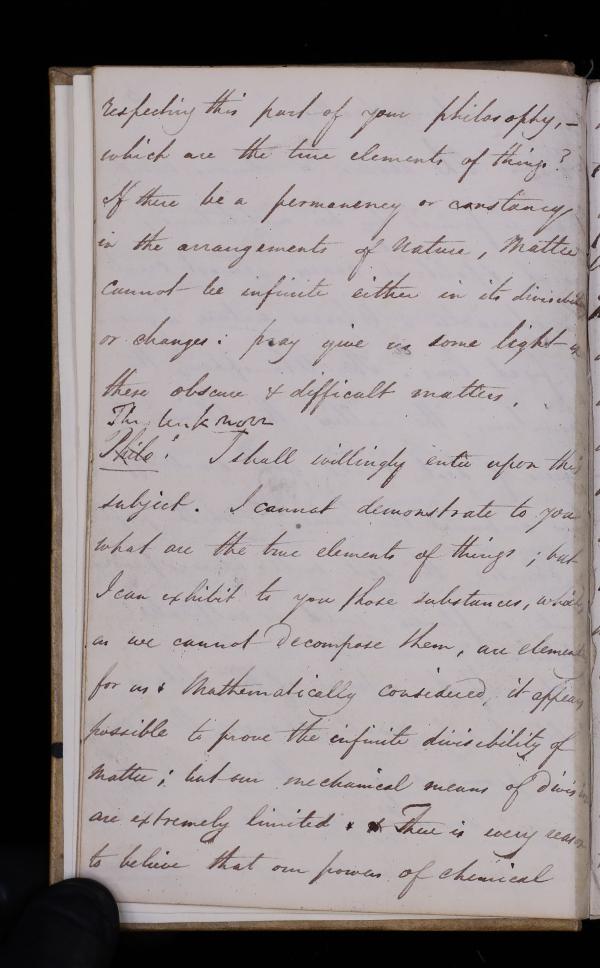 respecting this part of your philosophy, –
which are the true elements of things?
If there be a permanency or constancy,
in the arrangements of Nature, Matter
cannot be infinite either in its divisibility
or changes: pray give us some light
these obscure & difficult matters.
The Unknown
Philo: I shall willingly enter upon this
subject. I cannot demonstrate to you
what are the true elements of things; but
I can exhibit to you those substances, which,
as we cannot decompose them, are elements
for us & Mathematically considered, it appears
possible to prove the infinite divisibility of
matter; but our mechanical means of division
are extremely limited & There is every reason
to believe that our powers of chemical